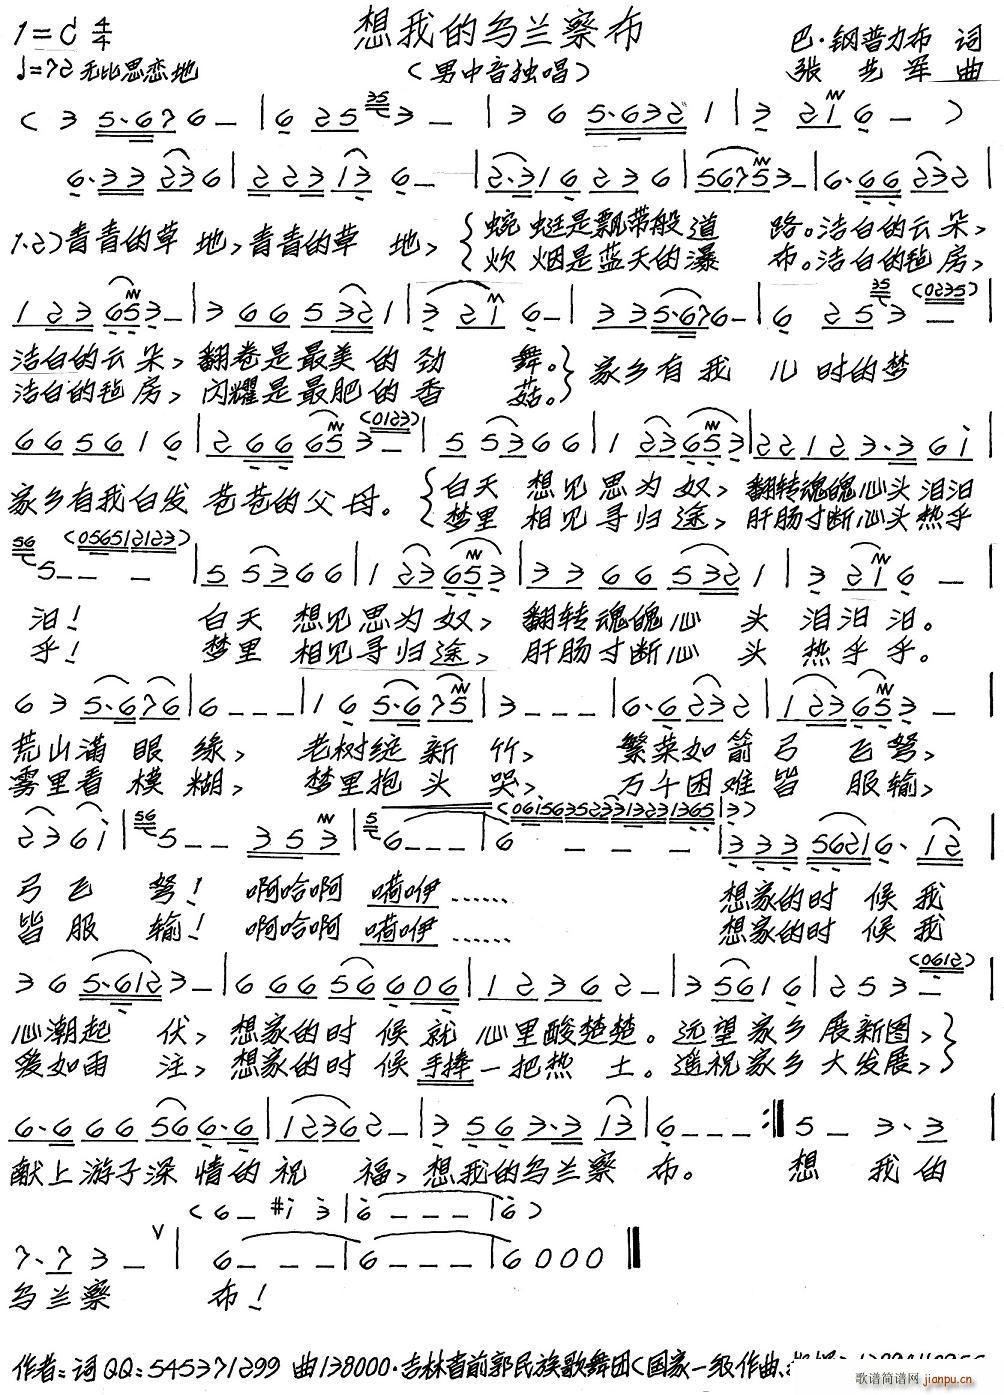 1=C 4/4
想我的乌兰察布
巴·钢普力布 词
♩=72 无比思恋地
（男中音独唱）
张艺军 曲
( 3 5·676 - | 6 25 35 3 - | 3 6 5·632 1 | 3 21 6 - )
6·33 236 | 223 13 6 - | 2·316 236 | 5675 3 - | 6·66 232 |
1.2)青青的草 地,青青的草 地, 蜿蜒是飘带般道 路。洁白的云朵,
炊烟是蓝天的瀑 布。洁白的毡房,
123 653 - | 366 532 1 | 3 21 6 - | 335·676 - | 6 25 35 3 (0235) |
洁白的云朵,翻卷是最美的劲 舞。 家乡有我儿时的梦
洁白的毡房,闪耀是最肥的香 菇。
665616 | 266 65 3 (0123) | 55366 | 123 653 | 22123·36 i |
家乡有我白发苍苍的父母。 白天想见思为奴,翻转魂魄心头泪汩
梦里相见寻归途,肝肠寸断心头热乎
56 5 - - - (056512123) | 55366 | 123 653 | 3366 532 1 | 3 21 6 - |
汩! 白天想见思为奴,翻转魂魄心 头 泪汩汩。
乎! 梦里相见寻归途,肝肠寸断心 头 热乎乎。
63 5·676 | 6 - - - | 16 5·675 | 3 - - - | 6·6232 | 123 653 - |
荒山满眼缘, 老树绽新竹, 繁菜如箭弓飞弩,
雾里看模糊, 梦里抱头哭, 万千困难皆服输,
236i | 56 5 - - 353 | 5 6 - - - | 6 - - - (06i563523313231365 | 3) | 333 5621 6· 12 |
弓飞 弩! 啊哈啊 嗬咿…… 想家的时候我
皆服 输! 啊哈啊 嗬咿…… 想家的时候我
36 5·612 3 - | 666 566 606 | 12362 - | 3 5616 | 253 - (0612) |
心潮起 伏,想家的时候就心里酸楚楚。远望家乡展新图,
爱如雨 注,想家的时候手捧一把热 土。遥祝家乡大发展,
6·666 566·6 | 12362 - | 3 563·3 13 | 6 - - - :‖ 5 - 3·3 |
献上游子深情的祝 福,想我的乌兰察 布。 想 我的
( 6 - #i 3 | 6 - - - | 6 )
7·7 3 - ∨ | 6 - - - | 6 - - - | 6 0 0 0 ‖
乌兰察 布!
作者:词QQ:545371299 曲138000·吉林省前郭民族歌舞团(国家一级作曲、
歌谱简谱网
jianpu.cn